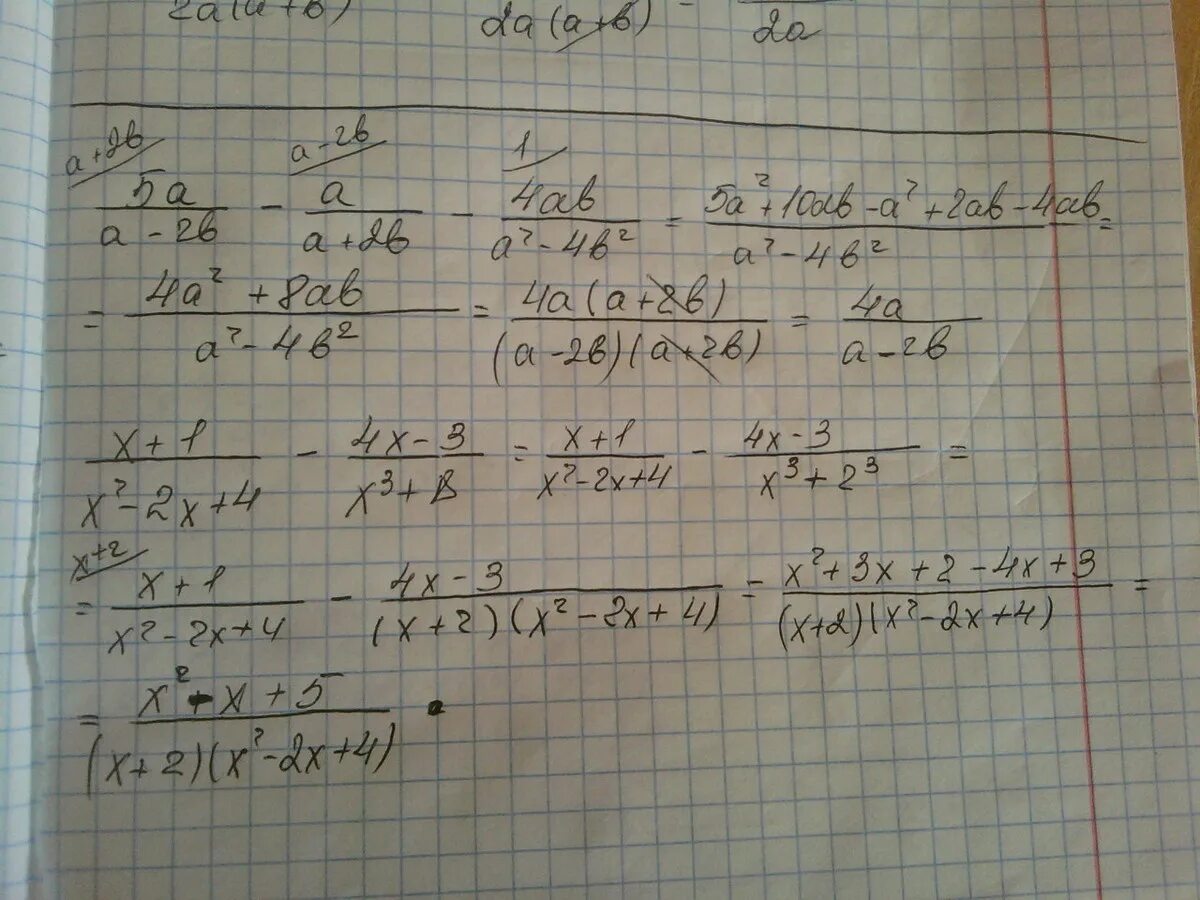 2a(a+b) 2a(a+b) - 2a
a+2b a-2b 1
5a/(a-2b) - a/(a+2b) - 4ab/(a²-4b²) = (5a²+10ab-a²+2ab-4ab)/(a²-4b²) =
= (4a²+8ab)/(a²-4b²) = 4a(a+2b)/((a-2b)(a+2b)) = 4a/(a-2b)
(x+1)/(x²-2x+4) - (4x-3)/(x³+8) = (x+1)/(x²-2x+4) - (4x-3)/(x³+2³) =
x+2
= (x+1)/(x²-2x+4) - (4x-3)/((x+2)(x²-2x+4)) = (x²+3x+2-4x+3)/((x+2)(x²-2x+4)) =
= (x²-x+5)/((x+2)(x²-2x+4)) .